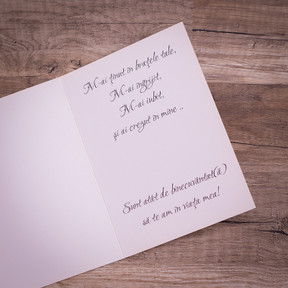 M-ai ținut în brațele tale,
M-ai îngrijit,
M-ai iubit,
și ai crezut în mine...
Sunt atât de binecuvântat(ă)
să te am în viața mea!